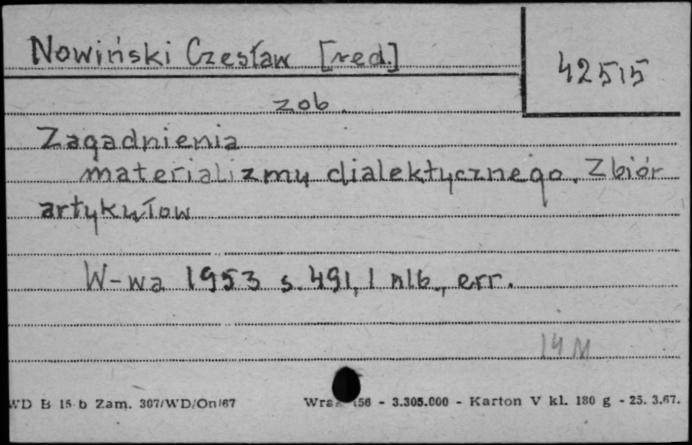 Nowiński Czesław [red.]
42515
zob.
Zagadnienia
materializmu dialektycznego. Zbiór
artykułow
W-wa 1953 s. 491, 1 nlb., err.
14 M
WD B 15 b Zam. 307/WD/On/67 - 3.305.000 - Karton V kl. 180 g - 25. 3.67.